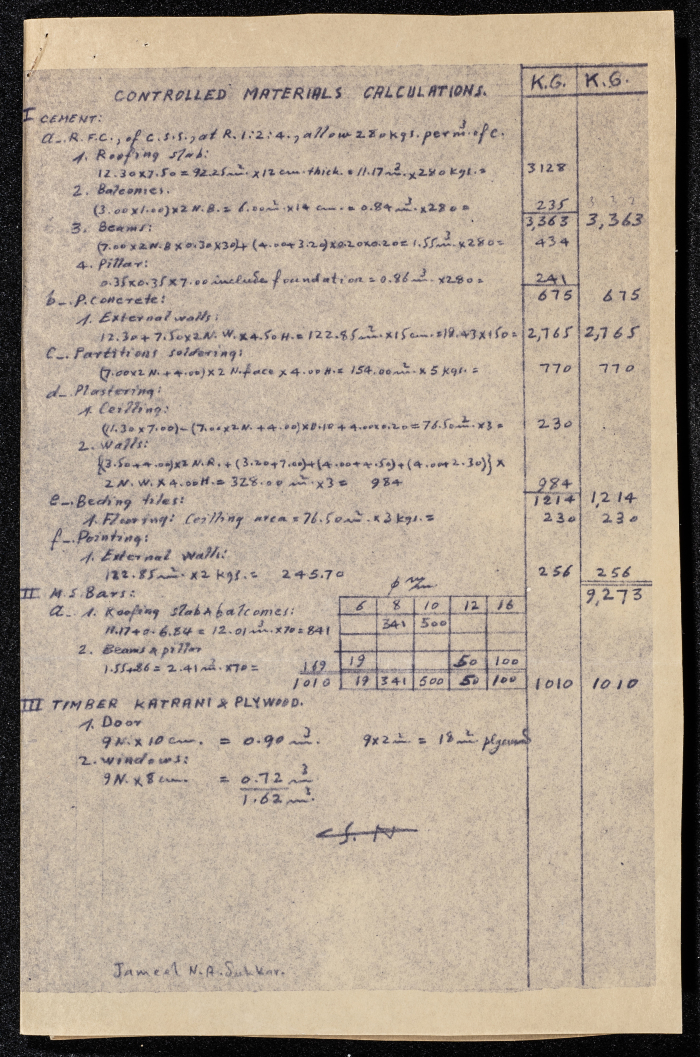 CONTROLLED MATERIALS CALCULATIONS. K.G. K.G.
I CEMENT:
a_. R.F.C., of C.S.S., at R. 1:2:4., allow 280 kgs. per m³. of c.
1. Roofing slab:
12.30x7.50 = 92.25 m². x 12 cm. thick. = 11.17 m³. x 280 kgs. = 3128
2. Balconies.
(3.00x1.00)x2 N.B. = 6.00 m². x 14 cm. = 0.84 m³. x 280 = 235
3,363 3,363
3. Beams:
(7.00x2 N.B x 0.30x30) + (4.00+3.20)x0.20x0.20 = 1.55 m³. x 280 = 434
4. Pillar:
0.35x0.35x7.00 include foundation = 0.86 m³. x 280 = 241
675 675
b_. P. Concrete:
1. External walls:
12.30 + 7.50x2 N. W. x 4.50 H. = 122.85 m². x 15 cm. = 18.43x150 = 2,765 2,765
c_. Partitions soldering:
(7.00x2 N. + 4.00)x2 N. face x 4.00 H. = 154.00 m². x 5 kgs. = 770 770
d_. Plastering:
1. Ceilling:
(11.30x7.00)-(7.00x2 N. + 4.00)x0.10 + 4.00x0.20 = 76.50 m². x 3 = 230
2. Walls:
{(3.50+4.00)x2 N.R. + (3.20+7.00)+(4.00+4.50)+(4.00+2.30)} x
2 N. W. x 4.00 H. = 328.00 m². x 3 = 984 984
1214 1,214
e_. Beding tiles:
1. Flooring: Ceilling area = 76.50 m². x 3 kgs. = 230 230
f_. Pointing:
1. External walls:
122.85 m². x 2 kgs. = 245.70 256 256
9,273
II M.S. Bars: φ m/m
6 8 10 12 16
a_ 1. Roofing slab & balconies:
11.17+0.6.84 = 12.01 m³. x 70 = 841 341 500
2. Beams & pillar
1.55+86 = 2.41 m³. x 70 = 169 19 50 100
1010 19 341 500 50 100 1010 1010
III TIMBER KATRANI & PLYWOOD.
1. Door
9 N. x 10 cm. = 0.90 m³. 9x2 m² = 18 m² plywood
2. Windows:
9 N. x 8 cm. = 0.72 m³
1.62 m³.
S. N
Jameel N.A. Sukkar.